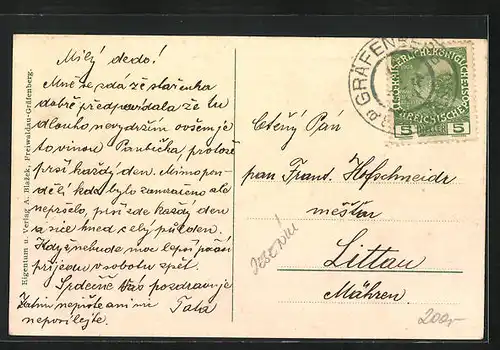 Milý dedo!
Mně se zdá že stařenka
dobře předpovídala že tu
dlouho nevydržím ovšem je
to vinou Pantička, protože
prší každý den. Mimo pon-
dělí, kdy bylo zamračeno ale
nepršelo, prší zde každý den
a sice hned celý půlden.
Když nebude moc lepší počasí
přijedu v sobotu zpět.
Srdečně Vás pozdravuje
Zatím nepište ani mi Tata
neposílejte.
Eigentum u. Verlag A. Blažek, Freiwaldau-Gräfenberg.
GRÄFENBE
5 HELLER 5
Ctěný Pán
pan Frant. Hofschneidr
měšťan
Littau
Mähren
JESENÍK
200,-